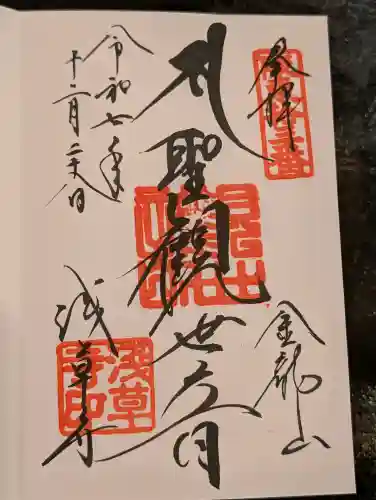 奉拝
金龍山
聖観世音
浅草寺
令和七年
十二月二十八日
浅草
寺印